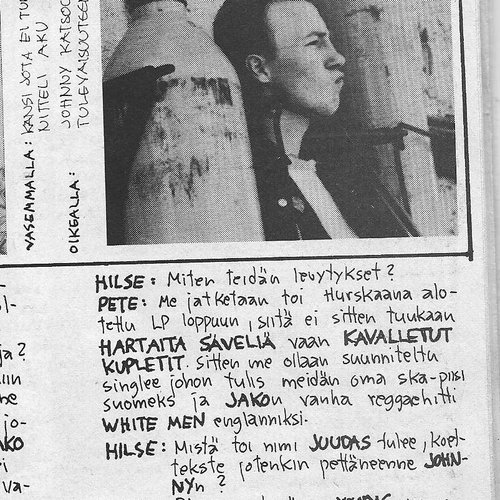 VASEMMALLA: KANSI JOTA EI TU
NITTELI AKU
OIKEALLA: JOHNNY KATSOO
TULEVAISUUTEEN
HILSE: Miten teidän levytykset?
PETE: Me jatketaan toi Hurskaana alo-
tettu LP loppuun, siitä ei sitten tuukaan
HARTAITA SÄVELIÄ vaan KAVALLETUT
KUPLETIT. Sitten me ollaan suunniteltu
singlee johon tulis meidän oma ska-piisi
suomeks ja JAKOn vanha reggaehitti
WHITE MEN englanniksi.
HILSE: Mistä toi nimi JUUDAS tulee, koet-
tekste jotenkin pettäneenne JOHN-
NYn?
ol-
ja?
iin
ne
jo-
AKO
ri
va-